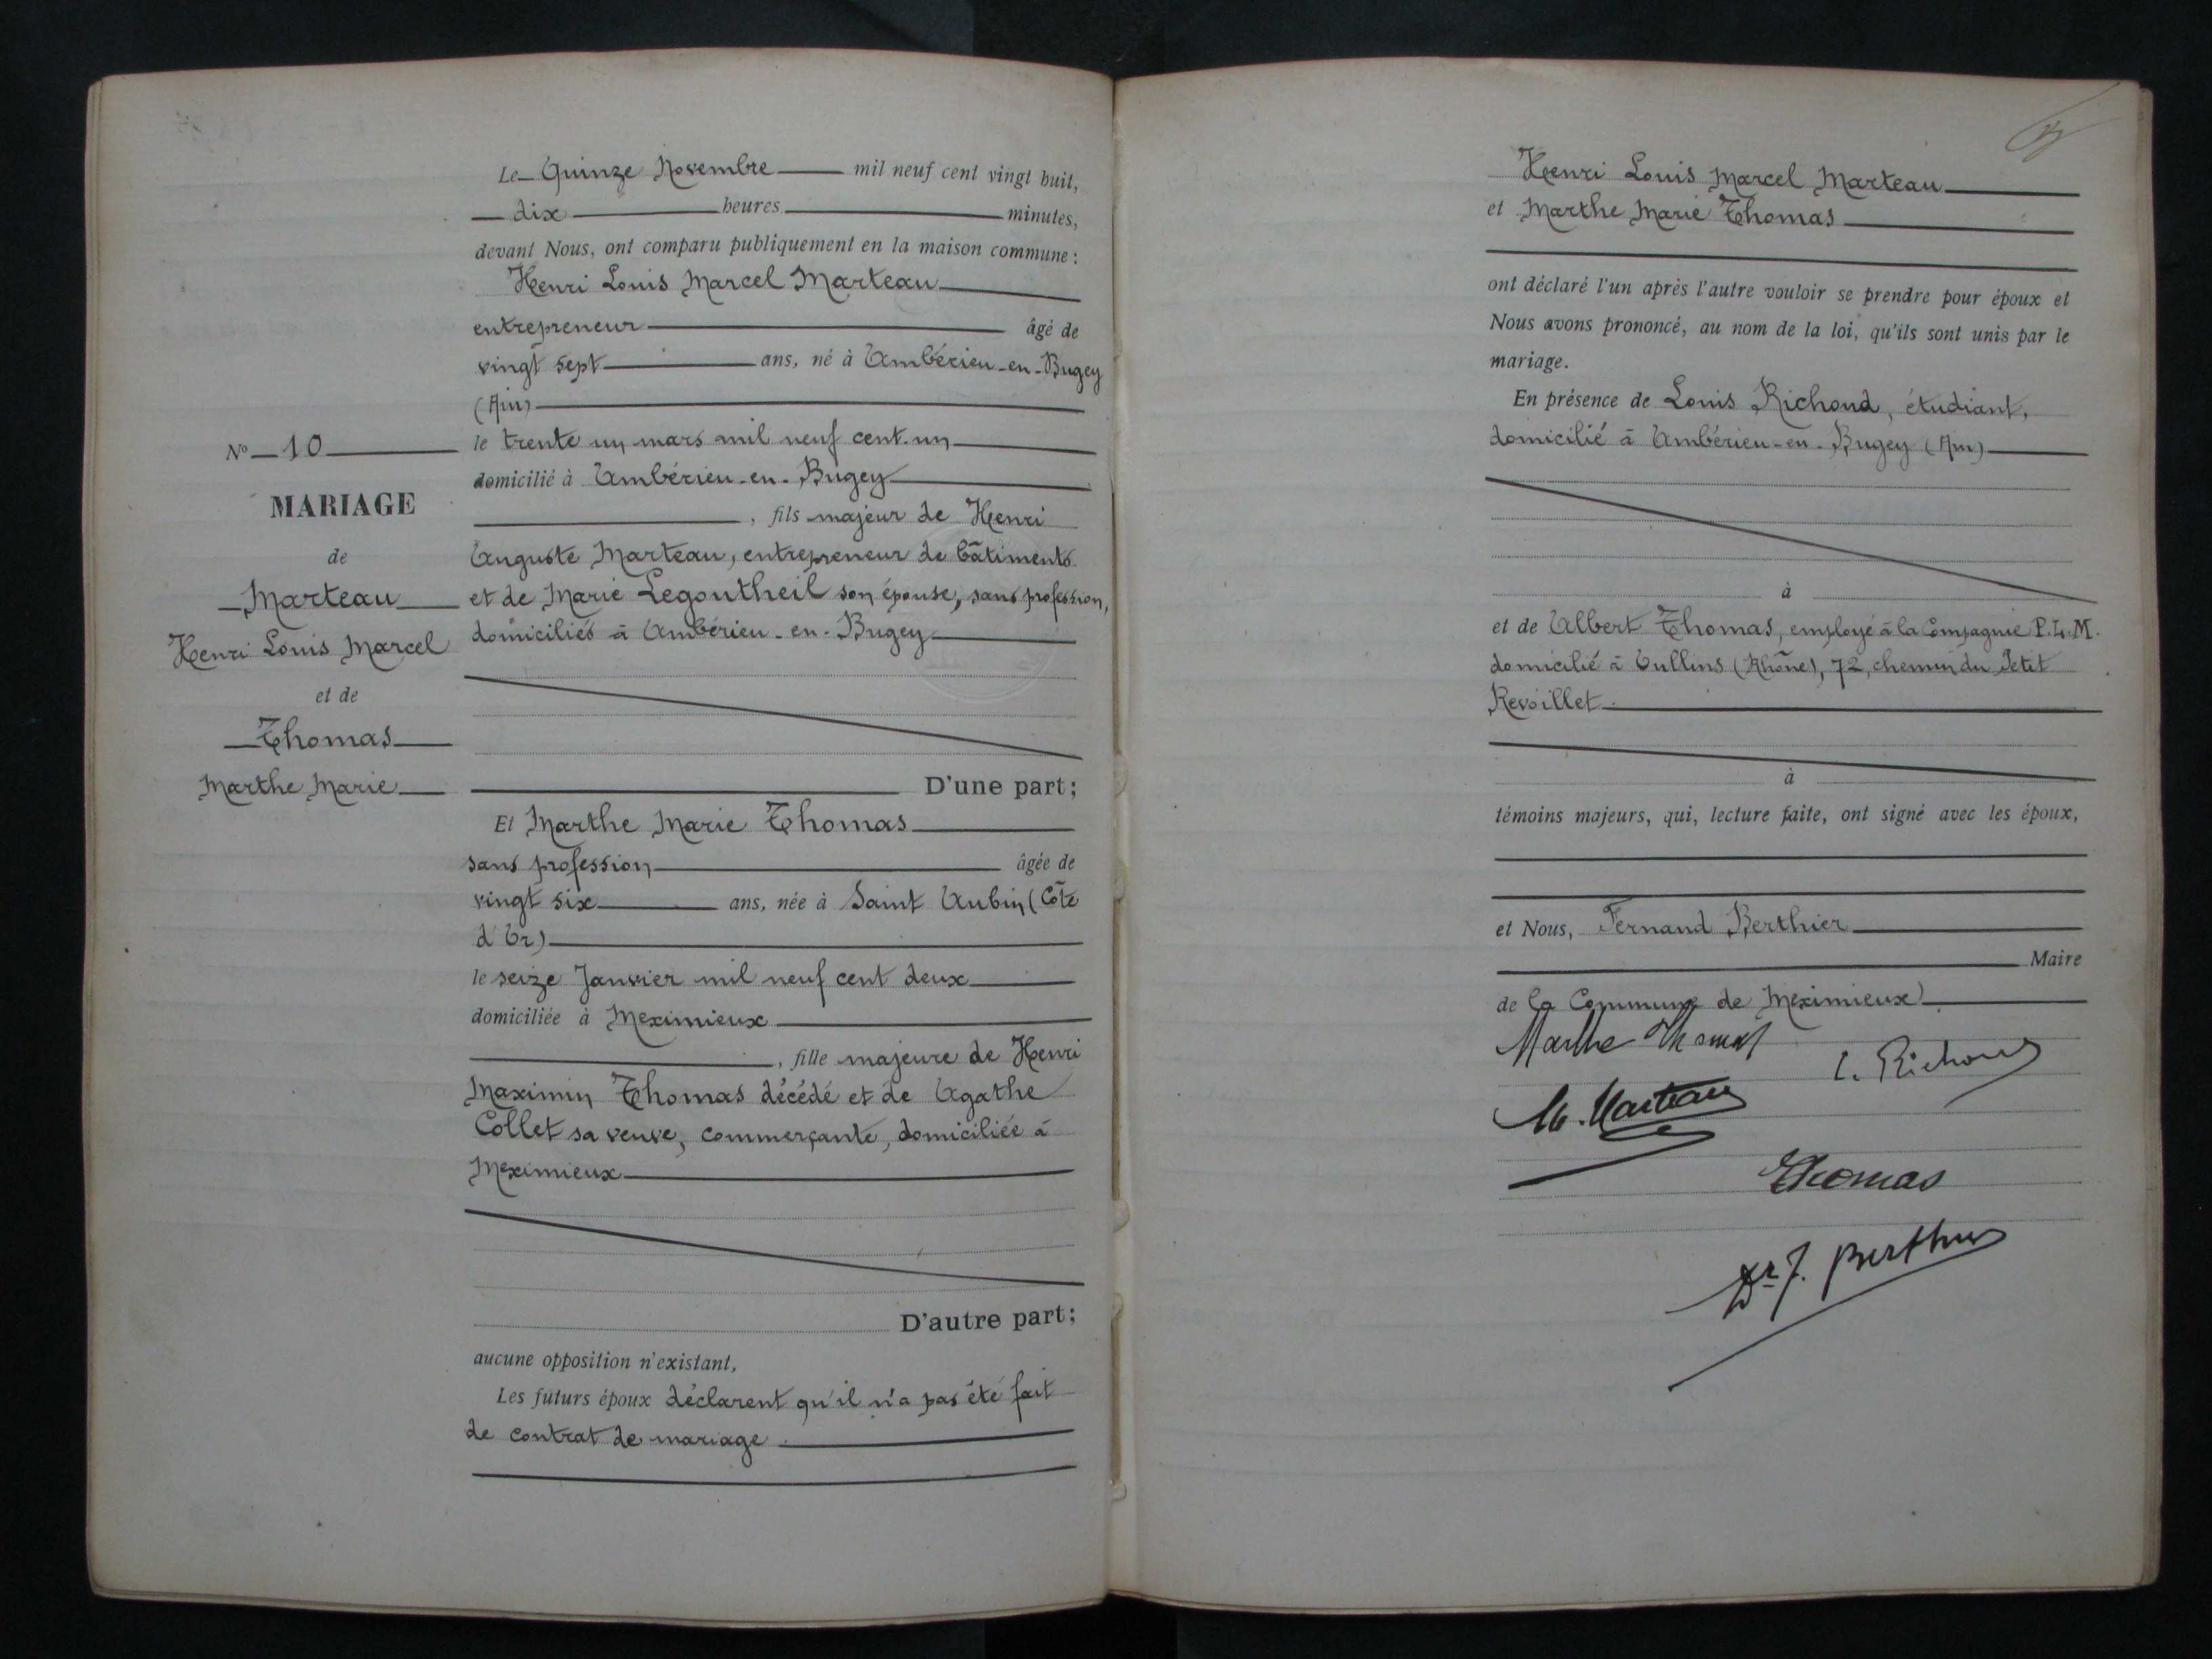 Le Quinze Novembre mil neuf cent vingt huit,
dix heures minutes,
devant Nous, ont comparu publiquement en la maison commune :
Henri Louis Marcel Marteau
entrepreneur âgé de
vingt sept ans, né à Ambérieu-en-Bugey
(Ain)
le trente un mars mil neuf cent un
domicilié à Ambérieu-en-Bugey
, fils majeur de Henri
Auguste Marteau, entrepreneur de bâtiments
et de Marie Legoutheil son épouse, sans profession,
domiciliés à Ambérieu-en-Bugey
D'une part ;
Et Marthe Marie Thomas
sans profession âgée de
vingt six ans, née à Saint Aubin (Côte
d'Or)
le seize Janvier mil neuf cent deux
domiciliée à Meximieux
, fille majeure de Henri
Maximin Thomas décédé et de Agathe
Collet sa veuve, commerçante, domiciliée à
Meximieux
D'autre part ;
aucune opposition n'existant,
Les futurs époux déclarent qu'il n'a pas été fait
de contrat de mariage.
No 10
MARIAGE
de
Marteau
Henri Louis Marcel
et de
Thomas
Marthe Marie
Henri Louis Marcel Marteau
et Marthe Marie Thomas
ont déclaré l'un après l'autre vouloir se prendre pour époux et
Nous avons prononcé, au nom de la loi, qu'ils sont unis par le
mariage.
En présence de Louis Richond, étudiant,
domicilié à Ambérieu-en-Bugey (Ain)
à
et de Albert Thomas, employé à la Compagnie P.L.M.
domicilié à Oullins (Rhône), 72, chemin du Petit
Revoillet.
à
témoins majeurs, qui, lecture faite, ont signé avec les époux,
et Nous, Fernand Berthier
Maire
de la Commune de Meximieux
Marthe Thomas
L. Richond
M. Marteau
Thomas
Dr F. Berthier